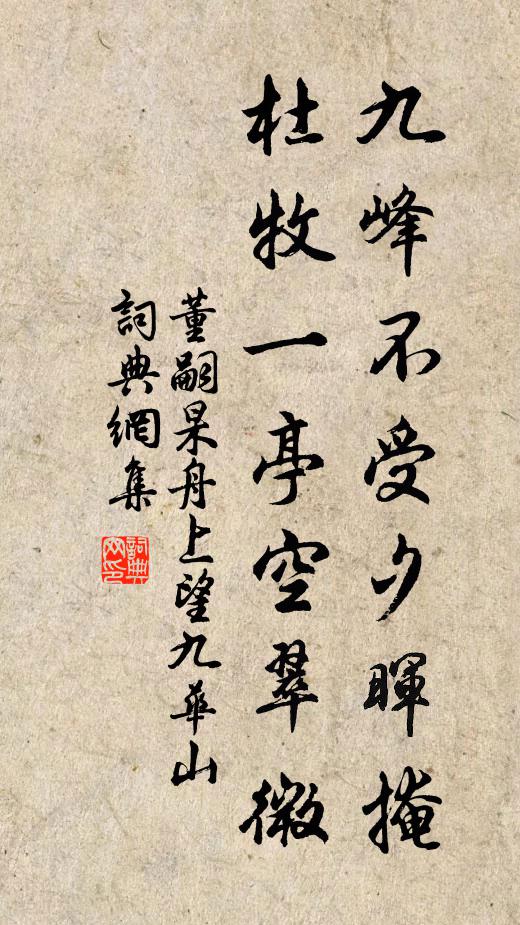 九峰不受夕暉掩
杜牧一亭空翠微
董嗣杲舟上望九華山
詞典網集
詞典网印